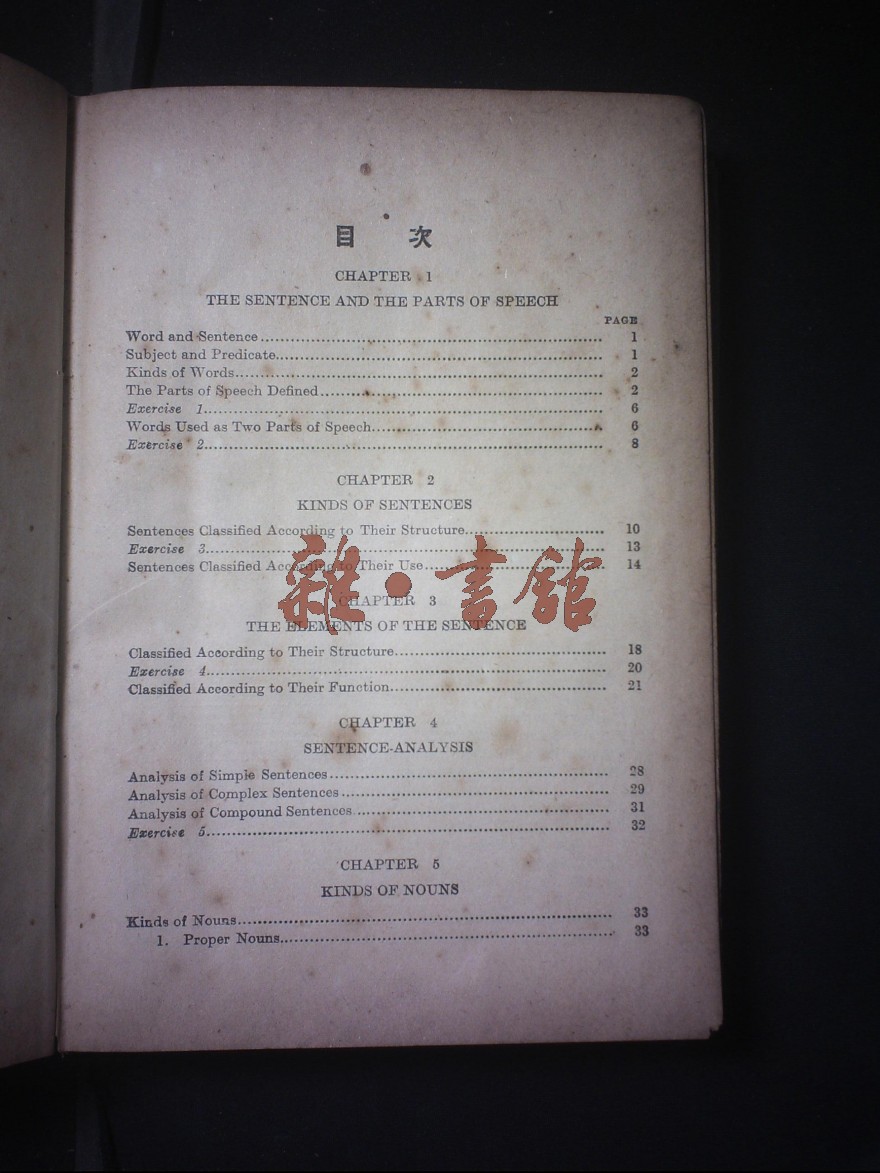 目 次
CHAPTER 1
THE SENTENCE AND THE PARTS OF SPEECH
PAGE
Word and Sentence 1
Subject and Predicate 1
Kinds of Words 2
The Parts of Speech Defined 2
Exercise 1 6
Words Used as Two Parts of Speech 6
Exercise 2 8
CHAPTER 2
KINDS OF SENTENCES
Sentences Classified According to Their Structure 10
Exercise 3 13
Sentences Classified According to Their Use 14
雜·書館
CHAPTER 3
THE ELEMENTS OF THE SENTENCE
Classified According to Their Structure 18
Exercise 4 20
Classified According to Their Function 21
CHAPTER 4
SENTENCE-ANALYSIS
Analysis of Simple Sentences 28
Analysis of Complex Sentences 29
Analysis of Compound Sentences 31
Exercise 5 32
CHAPTER 5
KINDS OF NOUNS
Kinds of Nouns 33
1. Proper Nouns 33